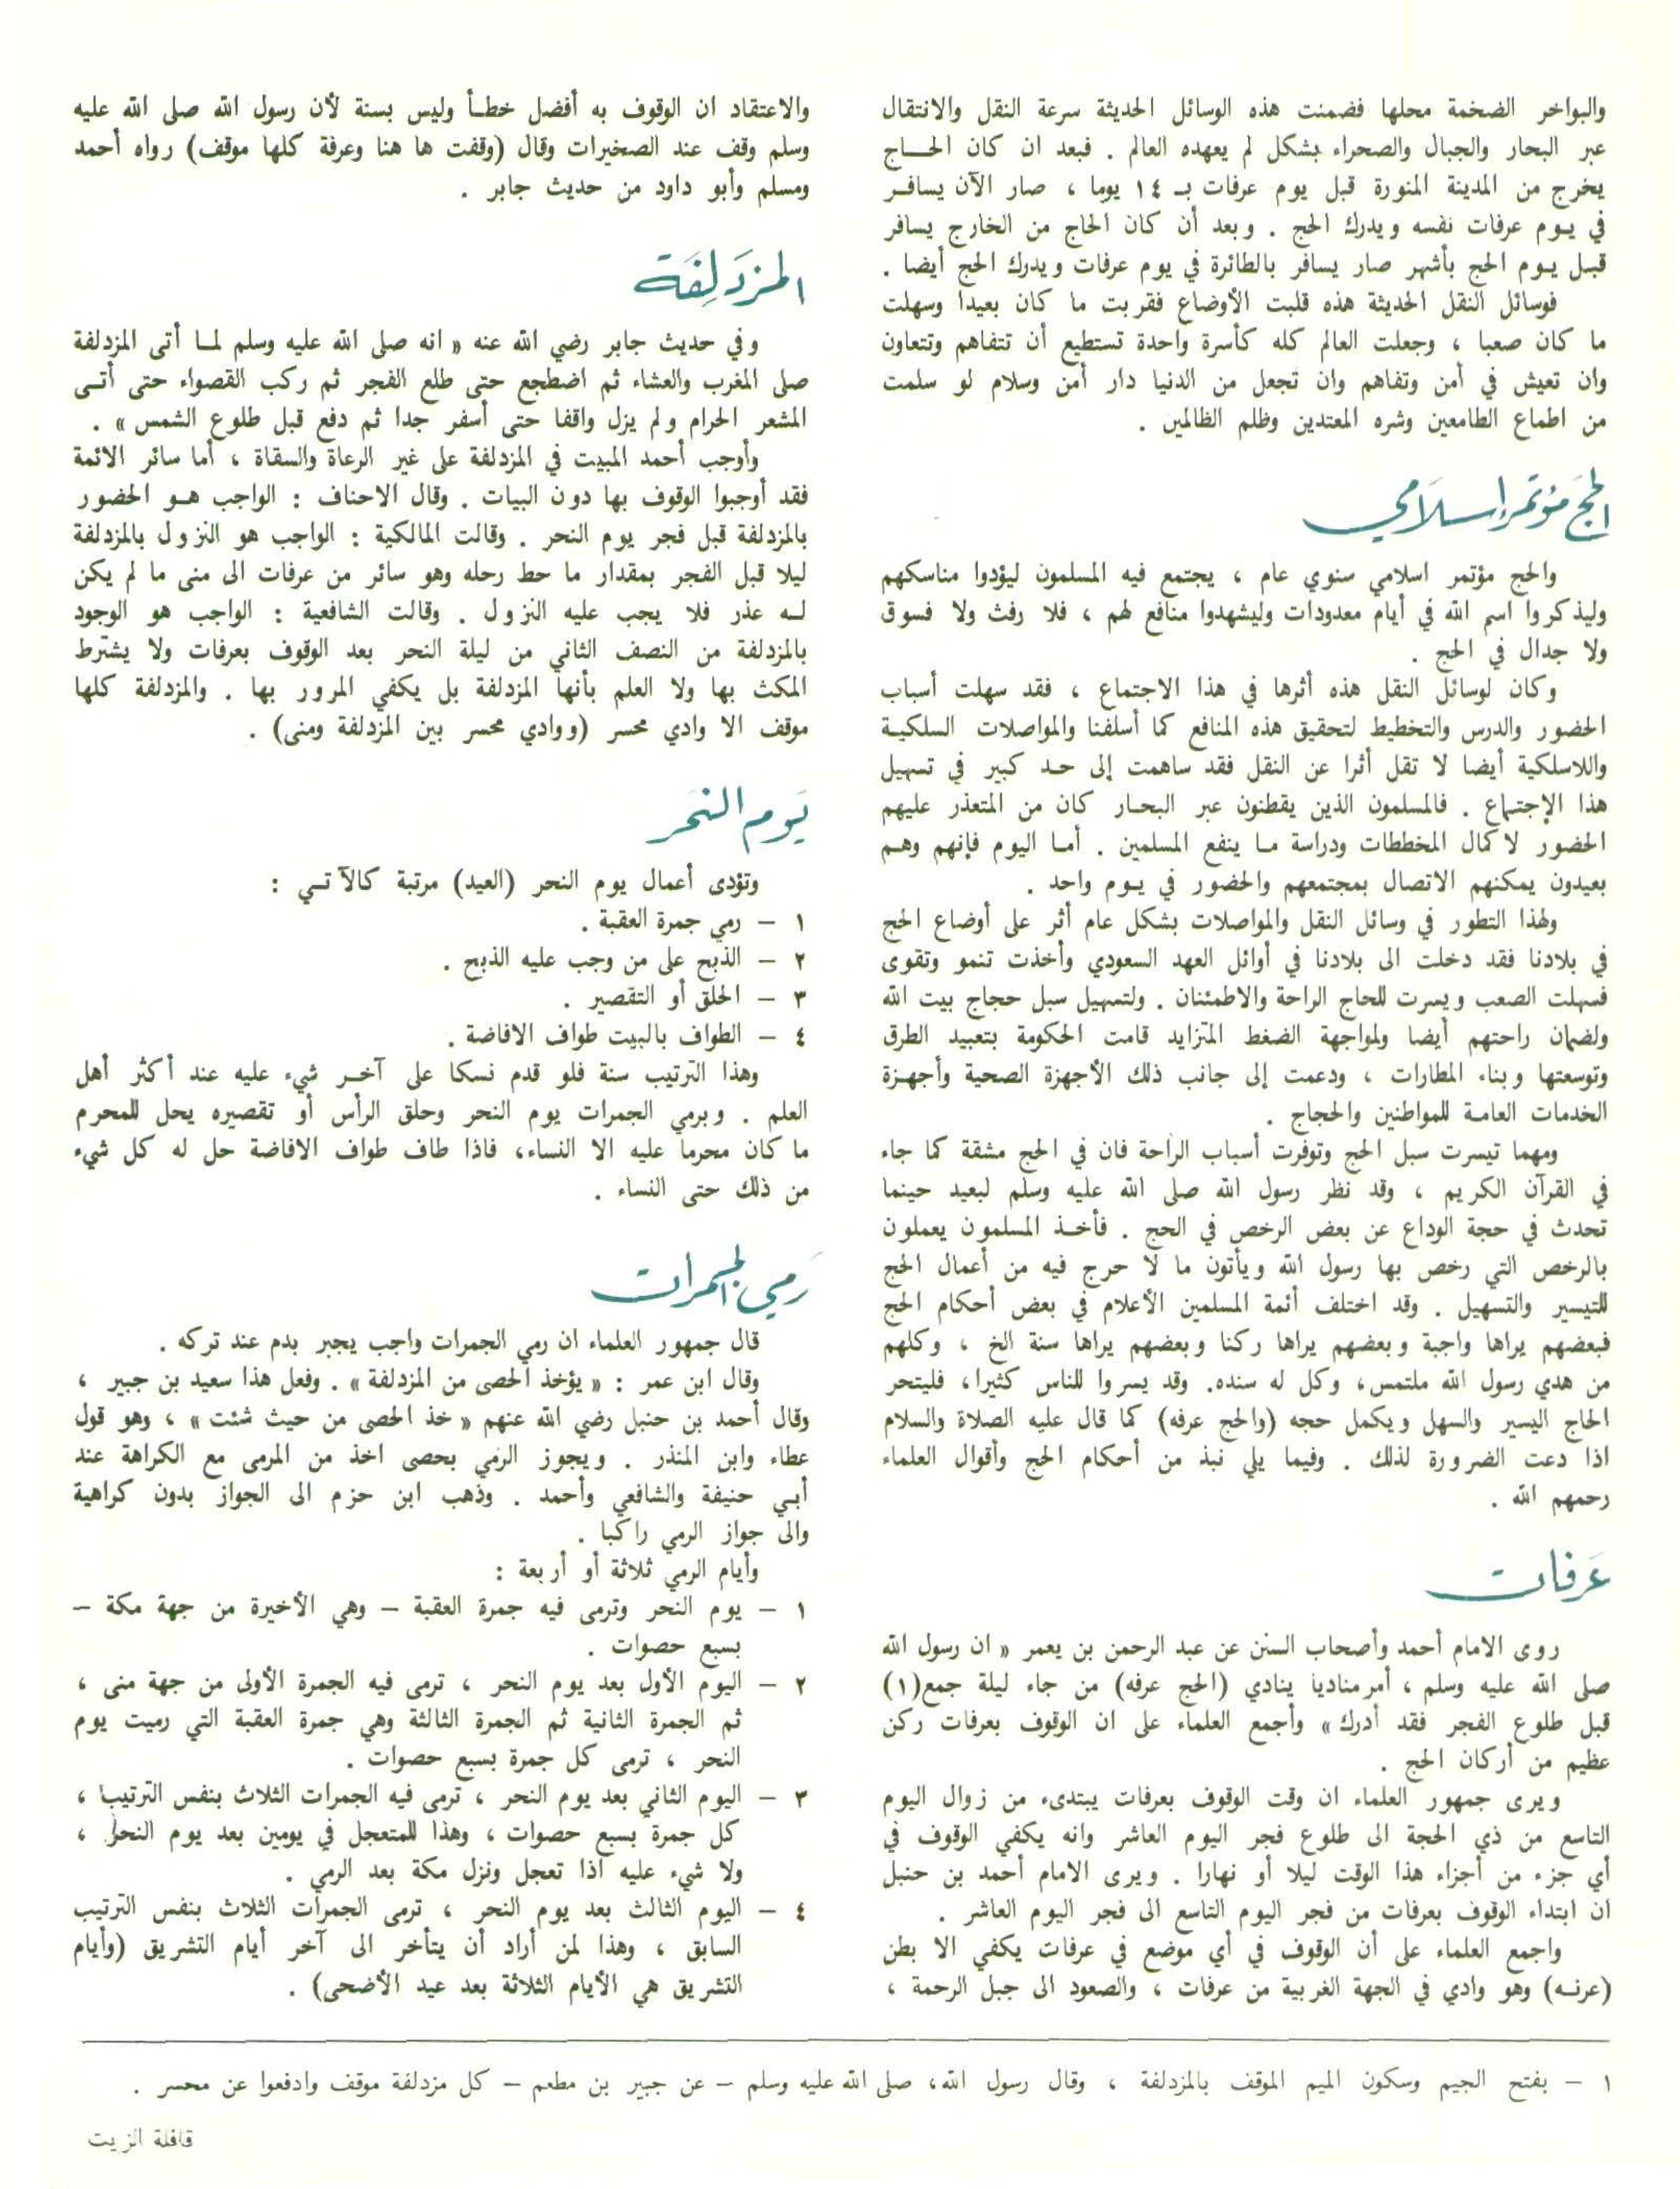 والبواخر الضخمة محلها فضمنت هذه الوسائل الحديثة سرعة النقل والانتقال
عبر البحار والجبال والصحراء بشكل لم يعهده العالم . فبعد ان كان الحــاج
يخرج من المدينة المنورة قبل يوم عرفات بـ ١٤ يوما ، صار الآن يسافـر
في يـوم عرفات نفسه ويدرك الحج . وبعد أن كان الحاج من الخارج يسافر
قبـل يـوم الحج بأشهر صار يسافر بالطائرة في يوم عرفات ويدرك الحج أيضا .
فوسائل النقل الحديثة هذه قلبت الأوضاع فقربت ما كان بعيدا وسهلت
ما كان صعبا ، وجعلت العالم كله كأسرة واحدة تستطيع أن تتفاهم وتتعاون
وان تعيش في أمن وتفاهم وان تجعل من الدنيا دار أمن وسلام لو سلمت
من اطماع الطامعين وشره المعتدين وظلم الظالمين .
الحَج مؤتمَر إسلَامي
والحج مؤتمر اسلامي سنوي عام ، يجتمع فيه المسلمون ليؤدوا مناسكهم
وليذكروا اسم الله في أيام معدودات وليشهدوا منافع لهم ، فلا رفث ولا فسوق
ولا جدال في الحج .
وكان لوسائل النقل هذه أثرها في هذا الاجتماع ، فقد سهلت أسباب
الحضور والدرس والتخطيط لتحقيق هذه المنافع كما أسلفنا والمواصلات السلكيـة
واللاسلكية أيضا لا تقل أثرا عن النقل فقد ساهمت إلى حـد كبير في تسهيل
هذا الإجتماع . فالمسلمون الذين يقطنون عبر البحـار كان من المتعذر عليهم
الحضور لاكمال المخططات ودراسة مـا ينفع المسلمين . أمـا اليوم فإنهم وهـم
بعيدون يمكنهم الاتصال بمجتمعهم والحضور في يـوم واحد .
ولهذا التطور في وسائل النقل والمواصلات بشكل عام أثر على أوضاع الحج
في بلادنا فقد دخلت الى بلادنا في أوائل العهد السعودي وأخذت تنمو وتقوى
فسهلت الصعب ويسرت للحاج الراحة والاطمئنان . ولتسهيل سبل حجاج بيت الله
ولضمان راحتهم أيضا ولمواجهة الضغط المتزايد قامت الحكومة بتعبيد الطرق
وتوسعتها وبناء المطارات ، ودعمت إلى جانب ذلك الأجهزة الصحية وأجهـزة
الخدمات العامـة للمواطنين والحجاج .
ومهما تيسرت سبل الحج وتوفرت أسباب الراحة فان في الحج مشقة كما جاء
في القرآن الكريم ، وقد نظر رسول الله صلى الله عليه وسلم لبعيد حينما
تحدث في حجة الوداع عن بعض الرخص في الحج . فأخـذ المسلمون يعملون
بالرخص التي رخص بها رسول الله ويأتون ما لا حرج فيه من أعمال الحج
للتيسير والتسهيل . وقد اختلف أئمة المسلمين الأعلام في بعض أحكام الحج
فبعضهم يراها واجبة وبعضهم يراها ركنا وبعضهم يراها سنة الخ ، وكلهم
من هدي رسول الله ملتمس، وكل له سنده. وقد يسروا للناس كثيرا، فليتحر
الحاج اليسير والسهل ويكمل حجه (والحج عرفه) كما قال عليه الصلاة والسلام
اذا دعت الضرورة لذلك . وفيما يلي نبذ من أحكام الحج وأقوال العلماء
رحمهم الله .
عَرفات
روى الامام أحمد وأصحاب السنن عن عبد الرحمن بن يعمر « ان رسول الله
صلى الله عليه وسلم ، أمر مناديا ينادي (الحج عرفه) من جاء ليلة جمع(١)
قبل طلوع الفجر فقد أدرك» وأجمع العلماء على ان الوقوف بعرفات ركن
عظيم من أركان الحج .
ويرى جمهور العلماء ان وقت الوقوف بعرفات يبتدىء من زوال اليوم
التاسع من ذي الحجة الى طلوع فجر اليوم العاشر وانه يكفي الوقوف في
أي جزء من أجزاء هذا الوقت ليلا أو نهارا . ويرى الامام أحمد بن حنبل
ان ابتداء الوقوف بعرفات من فجر اليوم التاسع الى فجر اليوم العاشر .
واجمع العلماء على أن الوقوف في أي موضع في عرفات يكفي الا بطن
(عرنـه) وهو وادي في الجهة الغربية من عرفات ، والصعود الى جبل الرحمة ،
والاعتقاد ان الوقوف به أفضل خطـأ وليس بسنة لأن رسول الله صلى الله عليه
وسلم وقف عند الصخيرات وقال (وقفت ها هنا وعرفة كلها موقف) رواه أحمد
ومسلم وأبو داود من حديث جابر .
المزدَلِفَة
وفي حديث جابر رضي الله عنه « انه صلى الله عليه وسلم لمـا أتى المزدلفة
صلى المغرب والعشاء ثم اضطجع حتى طلع الفجر ثم ركب القصواء حتى أتـى
المشعر الحرام ولم يزل واقفا حتى أسفر جدا ثم دفع قبل طلوع الشمس » .
وأوجب أحمد المبيت في المزدلفة على غير الرعاة والسقاة ، أما سائر الائمة
فقد أوجبوا الوقوف بها دون البيات . وقال الاحناف : الواجب هـو الحضور
بالمزدلفة قبل فجر يوم النحر . وقالت المالكية : الواجب هو النزول بالمزدلفة
ليلا قبل الفجر بمقدار ما حط رحله وهو سائر من عرفات الى منى ما لم يكن
لـه عذر فلا يجب عليه النزول . وقالت الشافعية : الواجب هو الوجود
بالمزدلفة من النصف الثاني من ليلة النحر بعد الوقوف بعرفات ولا يشترط
المكث بها ولا العلم بأنها المزدلفة بل يكفي المرور بها . والمزدلفة كلها
موقف الا وادي محسر (ووادي محسر بين المزدلفة ومنى) .
يَوم النحَر
وتؤدى أعمال يوم النحر (العيد) مرتبة كالآتـي :
١ – رمي جمرة العقبة .
٢ – الذبح على من وجب عليه الذبح .
٣ – الحلق أو التقصير .
٤ – الطواف بالبيت طواف الافاضة .
وهذا الترتيب سنة فلو قدم نسكا على آخـر شيء عليه عند أكثر أهل
العلم . وبرمي الجمرات يوم النحر وحلق الرأس أو تقصيره يحل للمحرم
ما كان محرما عليه الا النساء، فاذا طاف طواف الافاضة حل له كل شيء
من ذلك حتى النساء .
رَمي الجمرات
قال جمهور العلماء ان رمي الجمرات واجب يجبر بدم عند تركه .
وقال ابن عمر : « يؤخذ الحصى من المزدلفة » . وفعل هذا سعيد بن جبير ،
وقال أحمد بن حنبل رضي الله عنهم « خذ الحصى من حيث شئت » ، وهو قول
عطاء وابن المنذر . ويجوز الرمي بحصى اخذ من المرمى مع الكراهة عند
أبـي حنيفة والشافعي وأحمد . وذهب ابن حزم الى الجواز بدون كراهية
والى جواز الرمي راكبا .
وأيام الرمي ثلاثة أو أربعة :
١ – يوم النحر وترمى فيه جمرة العقبة – وهي الأخيرة من جهة مكة –
بسبع حصوات .
٢ – اليوم الأول بعد يوم النحر ، ترمى فيه الجمرة الأولى من جهة منى ،
ثم الجمرة الثانية ثم الجمرة الثالثة وهي جمرة العقبة التي رميت يوم
النحر ، ترمى كل جمرة بسبع حصوات .
٣ – اليوم الثاني بعد يوم النحر ، ترمى فيه الجمرات الثلاث بنفس الترتيب ،
كل جمرة بسبع حصوات ، وهذا للمتعجل في يومين بعد يوم النحر ،
ولا شيء عليه اذا تعجل ونزل مكة بعد الرمي .
٤ – اليوم الثالث بعد يوم النحر ، ترمى الجمرات الثلاث بنفس الترتيب
السابق ، وهذا لمن أراد أن يتأخر الى آخر أيام التشريق (وأيام
التشريق هي الأيام الثلاثة بعد عيد الأضحى) .
١ – بفتح الجيم وسكون الميم الموقف بالمزدلفة ، وقال رسول الله، صلى الله عليه وسلم – عن جبير بن مطعم – كل مزدلفة موقف وادفعوا عن محسر .
قافلة الزيت